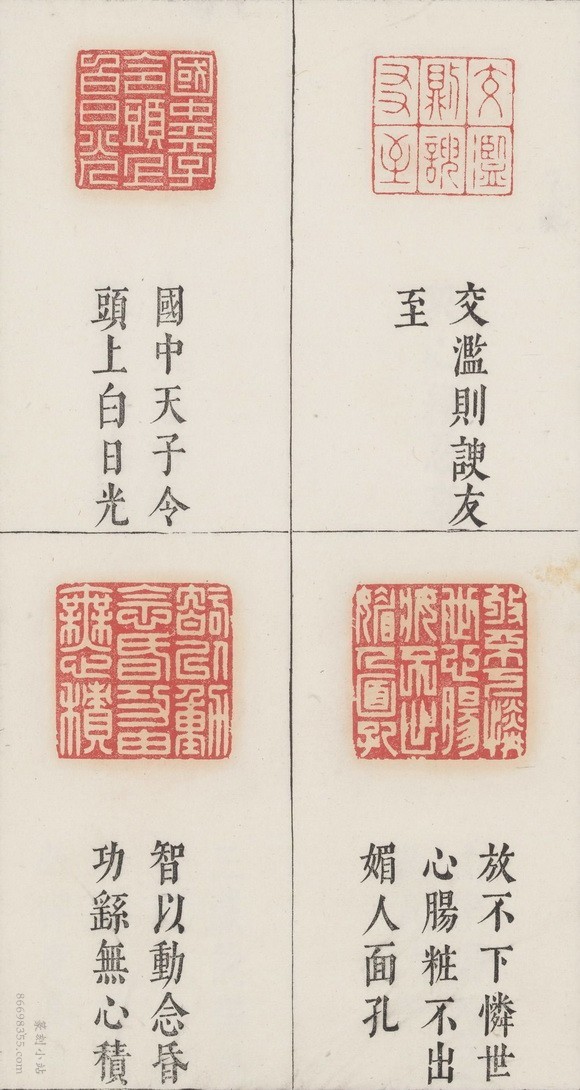 交濫則諛友
至
國中天子令
頭上白日光
放不下憐世
心腸粧不出
媚人面孔
智以動念昏
功繇無心積
篆刻小站
86698355.com